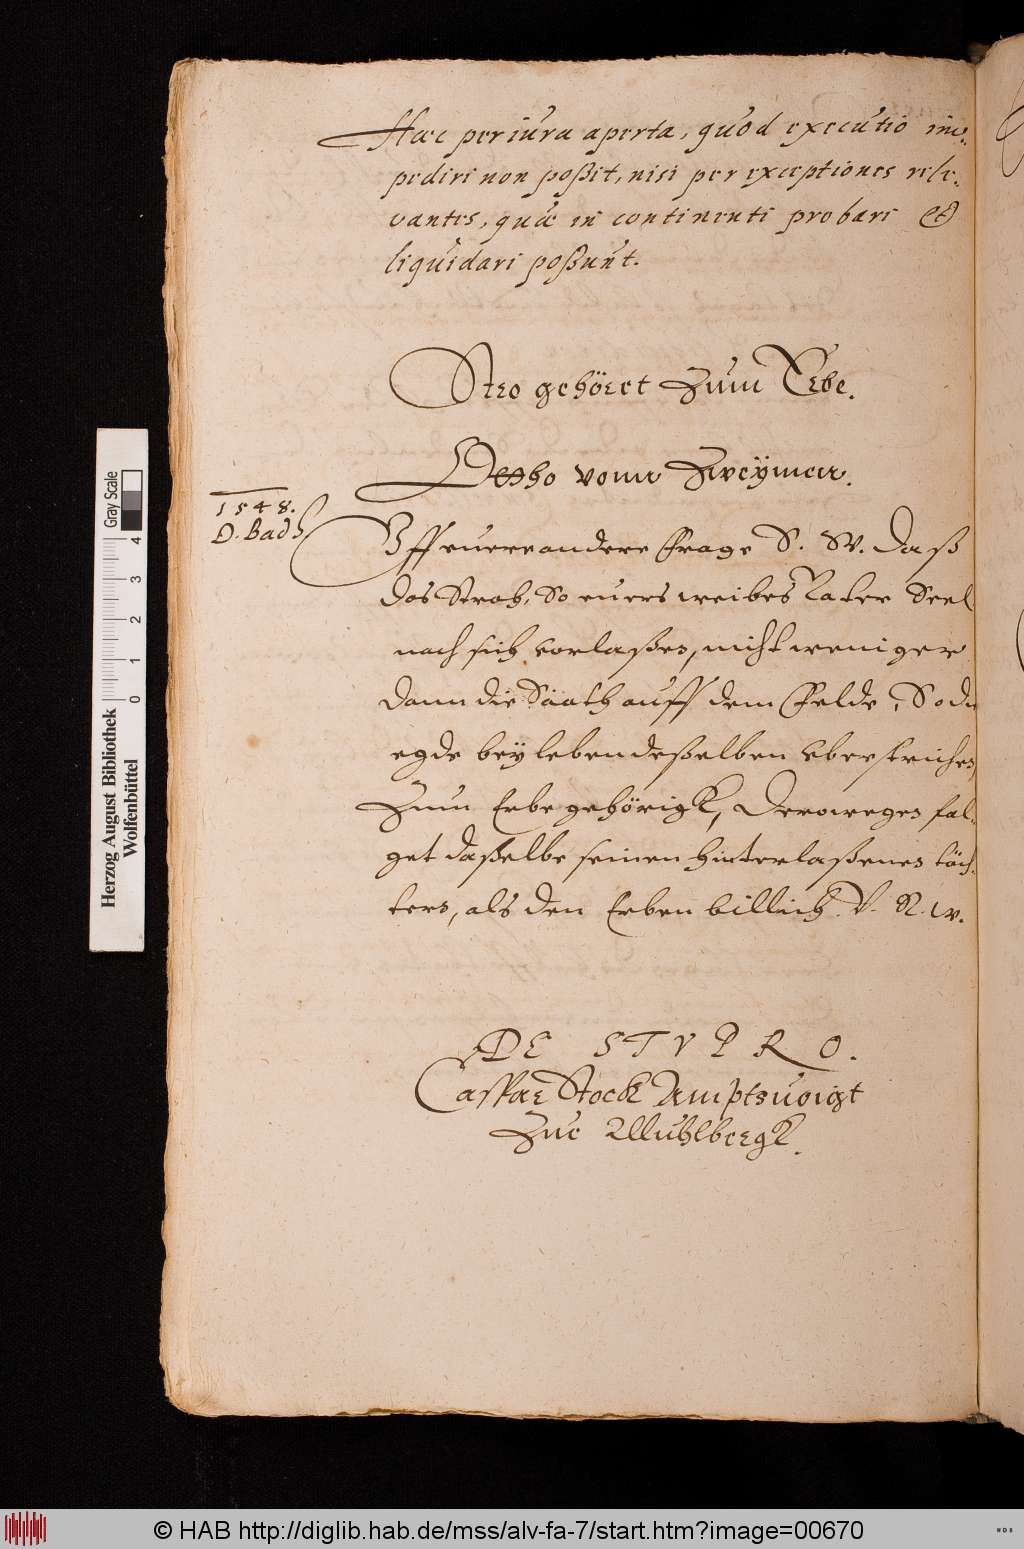 Hæc per iura aperta, quod executio im-
pediri non poßit, nisi per exceptiones rele-
vantes, quæ in continenti probari et
liquidari poßunt.
Stro gehöret zum Erbe.
Ditho vom Zweymer.
1548.
D. Badh
Vff euere andere Frage S. W. Daß
das Stroh, So euers weibes Vater Seel
nach sich vorlaßen, nicht weniger
dann die Säath auff dem Felde, So die
egde bey leben deßelben überstrichen,
Zum Erbe gehörigk, Derowegen fol-
get daßelbe seinen hinterlaßenen töch-
tern, als den Erben billich. V. R. W.
DE STVPRO.
Caspar Stock Amptsuoigt
Zue Muhlbergk.
Herzog August Bibliothek
Wolfenbüttel
0 1 2 3 4
Gray Scale
© HAB http://diglib.hab.de/mss/alv-fa-7/start.htm?image=00670